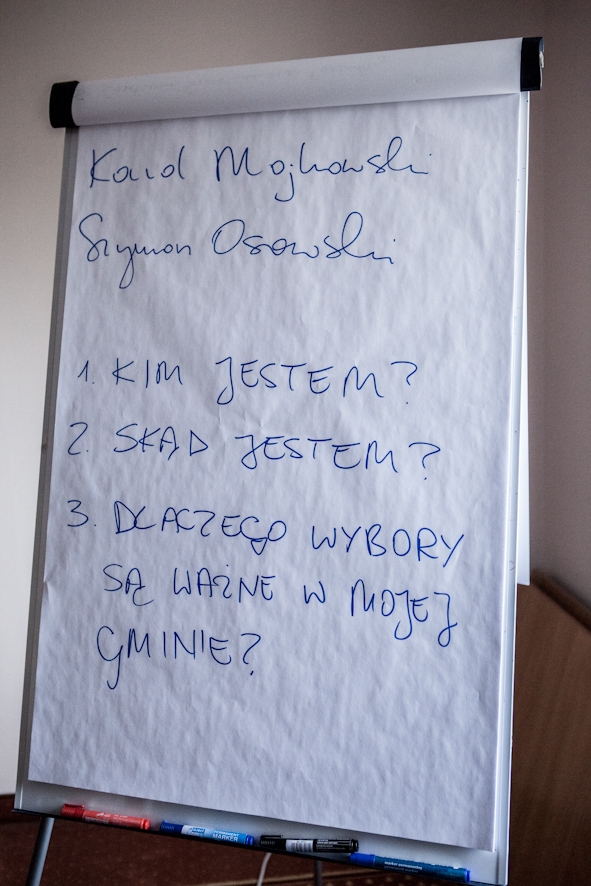 Karol Mojkowski
Szymon Osowski
1. KIM JESTEM?
2. SKĄD JESTEM?
3. DLACZEGO WYBORY
SĄ WAŻNE W MOJEJ
GMINIE?
MARKER